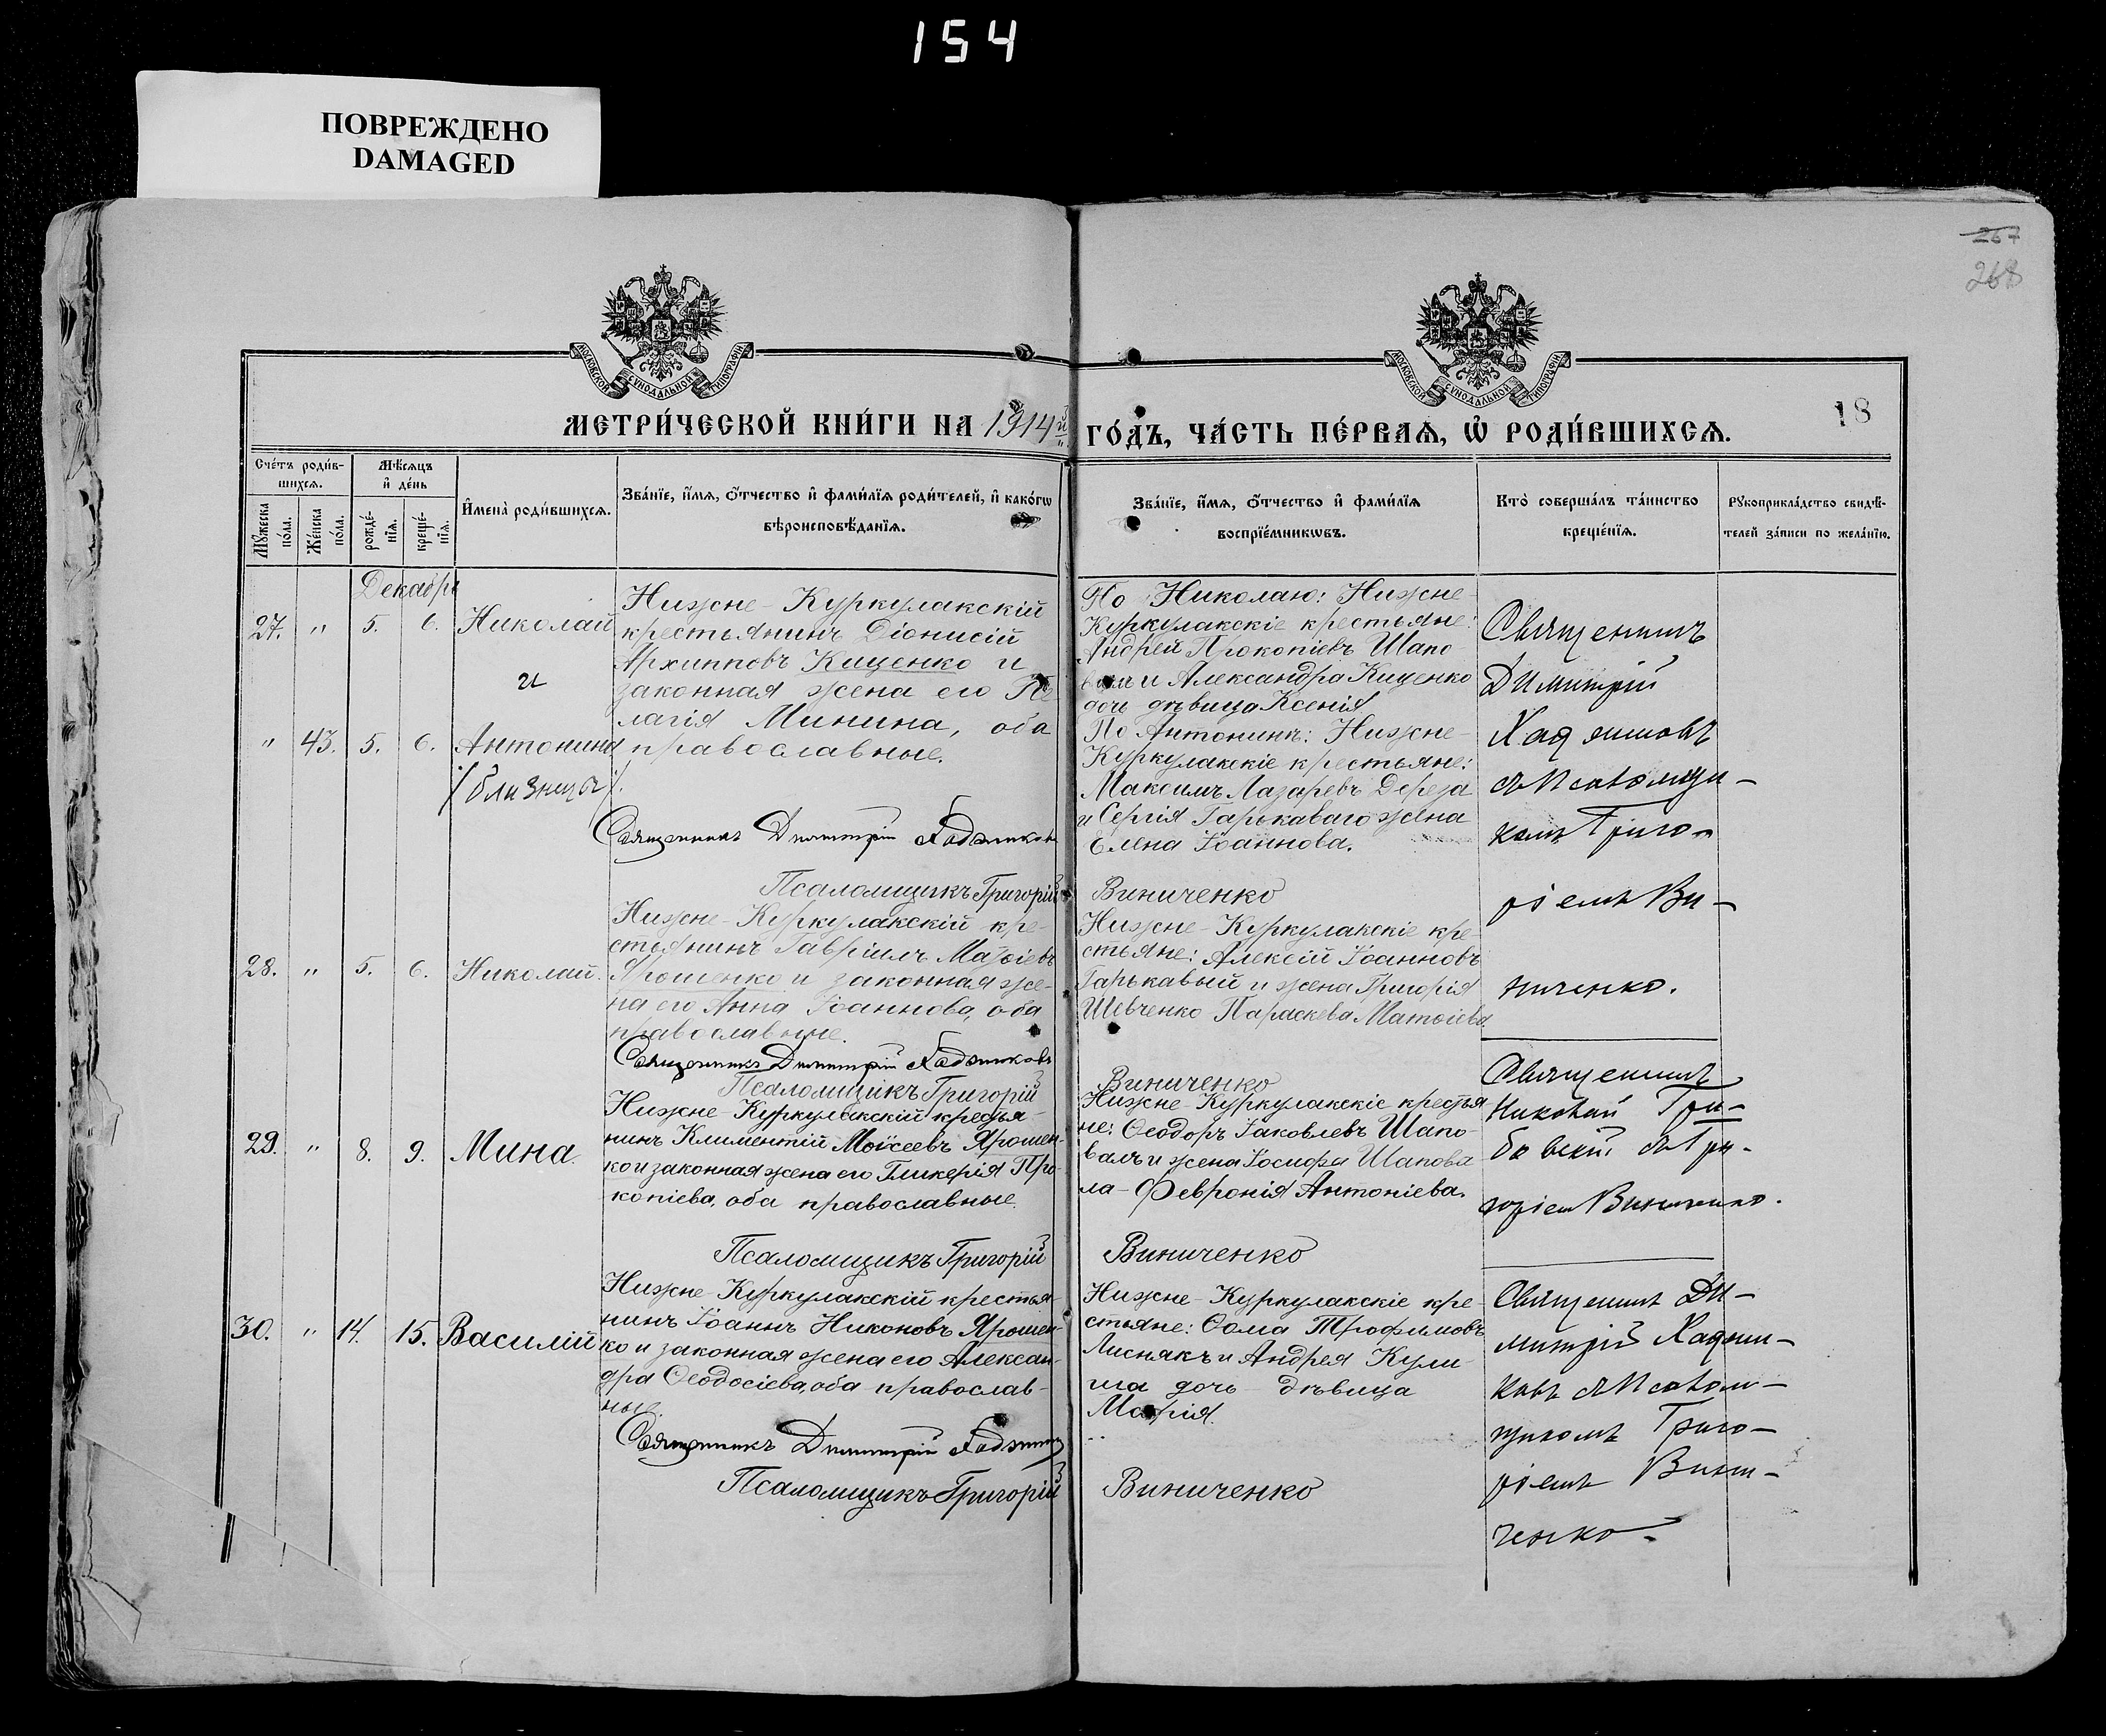 154
ПОВРЕЖДЕНО
DAMAGED
267
268
МОСКОВСКОЙ СѴНОДАЛЬНОЙ ТИПОГРАФІИ
МОСКОВСКОЙ СѴНОДАЛЬНОЙ ТИПОГРАФІИ
МЕТРИ́ЧЕСКОЙ КНИ́ГИ НА 1914й ГО́ДЪ, ЧА́СТЬ ПЕ́РВАѦ, Ѡ҆ РОДИ́ВШИХСѦ.
18
Сче́тъ роди́в-
шихсѧ.
Мѣ́сѧцъ
и҆ де́нь
Мꙋ́жеска
по́ла.
Же́нска
по́ла.
рожде́-
нїѧ.
креще́-
нїѧ.
И҆мена̀ роди́вшихсѧ.
Зва́нїе, и҆́мѧ, ѻ҆́тчество и҆ фами́лїѧ роди́телей, и҆ како́гѡ
вѣроисповѣ́данїѧ.
Зва́нїе, и҆́мѧ, ѻ҆́тчество и҆ фами́лїѧ
воспрїе́мникѡвъ.
Кто̀ соверша́лъ та́инство
креще́нїѧ.
Рꙋкоприкла́дство свидѣ́-
телей за́писи по жела́нїю.
Декабрь
27. " 5. 6. Николай
и
" 43. 5. 6. Антонина
/близнецы/.
Нижне-Куркулакскій
крестьянинъ Діонисій
Архипповъ Киценко и
законная жена его Пе-
лагія Минина, оба
православные.
Священникъ Димитрій Хаджиковъ
Псаломщикъ Григорій Виниченко
По Николаю: Нижне-
Куркулакскіе крестьяне:
Андрей Прокопіевъ Шапо-
валъ и Александра Киценко
дочь дѣвица Ксенія
По Антонинѣ: Нижне-
Куркулакскіе крестьяне:
Максимъ Лазаревъ Дереза
и Сергія Гарькаваго жена
Елена Іоаннова.
Священникъ
Димитрій
Хаджиковъ
съ Псаломщи-
комъ Григо-
ріемъ Ви-
ниченко.
28. " 5. 6. Николай.
Нижне-Куркулакскій кре-
стьянинъ Гавріилъ Матѳіевъ
Ярошенко и законная же-
на его Анна Іоаннова, оба
православные.
Священникъ Димитрій Хаджиковъ
Псаломщикъ Григорій Виниченко
Нижне-Куркулакскіе кре-
стьяне: Алексій Іоанновъ
Гарькавый и жена Григорія
Шевченко Параскева Матѳіева.
29. " 8. 9. Мина.
Нижне-Куркулакскій крестья-
нинъ Климентій Моѵсеевъ Ярошен-
ко и законная жена его Гликерія Про-
копіева, оба православные.
Псаломщикъ Григорій Виниченко
Нижне-Куркулакскіе крестья-
не: Ѳеодоръ Іаковлевъ Шапо-
валъ и жена Іосифа Шапова-
ла - Февронія Антоніева.
Священникъ
Николай Гри-
бовскій съ Гри-
горіем Виниченко.
30. " 14. 15. Василій
Нижне Куркулакскій крестья-
нинъ Іоаннъ Никоновъ Ярошен-
ко и законная жена его Алексан-
дра Ѳеодосіева, оба православ-
ные.
Священникъ Димитрій Хаджиковъ
Псаломщикъ Григорій Виниченко
Нижне-Куркулакскіе кре-
стьяне: Ѳома Трофимовъ
Лиснякъ и Андрея Кули-
ша дочь - дѣвица
Марія.
Священникъ Ди-
митрій Хаджи-
ковъ съ Псалом-
щикомъ Григо-
ріемъ Вини-
ченко.